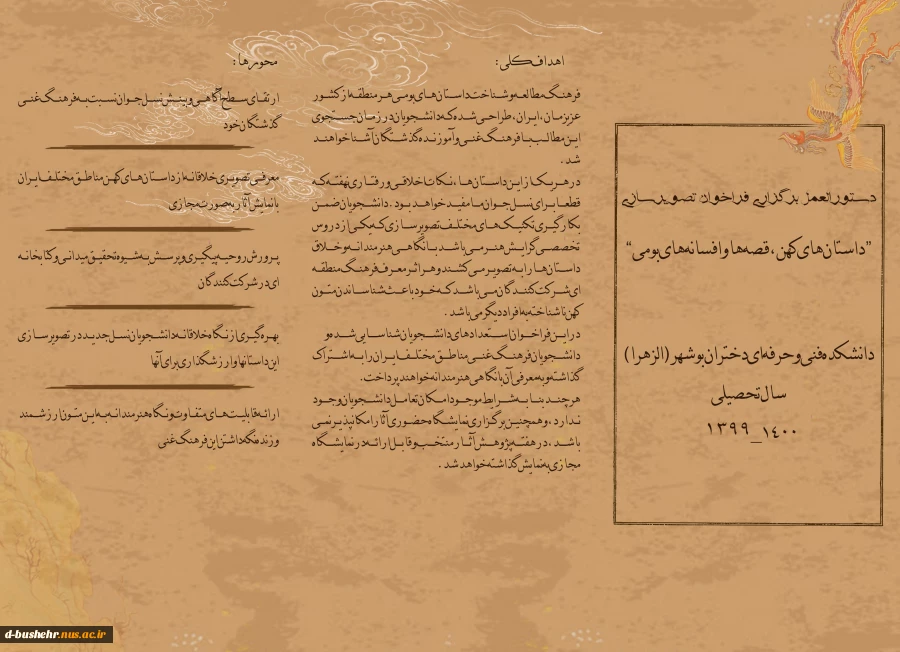 دستورالعمل برگزاری فراخوان تصویرسازی
"داستان های کهن، قصه ها و افسانه های بومی"
دانشکده فنی و حرفه ای دختران بوشهر (الزهرا)
سال تحصیلی
۱۳۹۹_۱۴۰۰
اهداف کلی:
فرهنگ مطالعه و شناخت داستان های بومی هر منطقه از کشور
عزیزمان، ایران، طراحی شده که دانشجویان در زمان جستجوی
این مطالب با فرهنگ غنی و آموزنده گذشتگان آشنا خواهند
شد.
در هر یک از این داستان ها، نکات اخلاقی و رفتاری نهفته که
قطعا برای نسل جوان ما مفید خواهد بود. دانشجویان ضمن
بکارگیری تکنیک های مختلف تصویرسازی که یکی از دروس
تخصصی گرایش هنر می باشد با نگاهی هنرمندانه و خلاق
داستان ها را به تصویر می کشند و هر اثر معرف فرهنگ منطقه
ای شرکت کنندگان می باشد که خود باعث شناساندن متون
کهن ناشناخته به افراد دیگر می باشد.
در این فراخوان استعدادهای دانشجویان شناسایی شده و
دانشجویان فرهنگ غنی مناطق مختلف ایران را به اشتراک
گذاشته و به معرفی آن با نگاهی هنرمندانه خواهند پرداخت.
هر چند بنا به شرایط موجود امکان تعامل دانشجویان وجود
ندارد، و همچنین برگزاری نمایشگاه حضوری آثار امکانپذیر نمی
باشد، در هفته پژوهش آثار منتخب و قابل ارائه در نمایشگاه
مجازی به نمایش گذاشته خواهد شد.
محورها:
ارتقای سطح آگاهی و بینش نسل جوان نسبت به فرهنگ غنی
گذشتگان خود
معرفی تصویری خلاقانه از داستان های کهن مناطق مختلف ایران
با نمایش آثار به صورت مجازی
پرورش روحیه پیگیری و پرسش به شیوه تحقیق میدانی و کتابخانه
ای در شرکت کنندگان
بهره گیری از نگاه خلاقانه دانشجویان نسل جدید در تصویرسازی
این داستانها و ارزشگذاری برای آنها
ارائه قابلیت های متفاوت و نگاه هنرمندانه به این متون ارزشمند
و زنده نگه داشتن این فرهنگ غنی
d-bushehr.nus.ac.ir